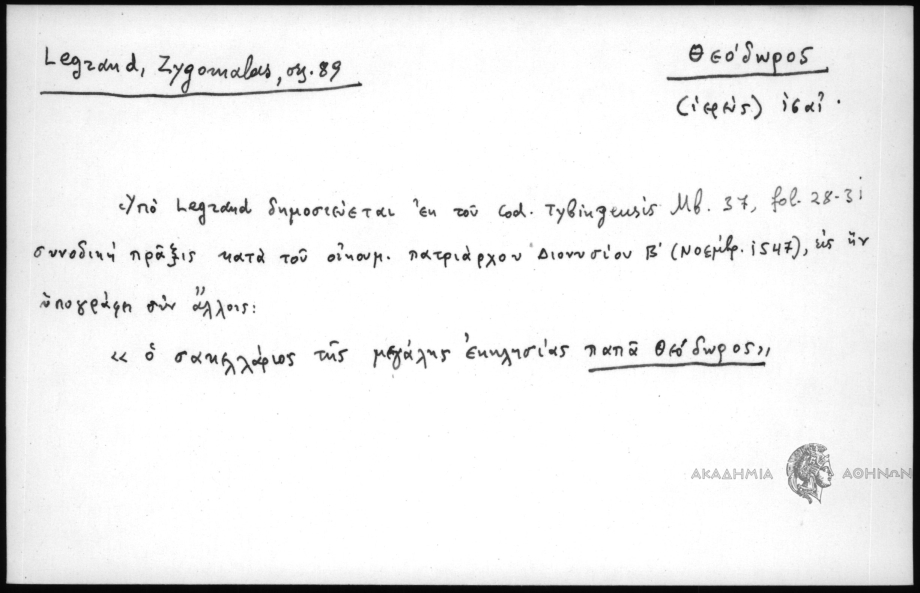 Legrand, Zygomalas, σελ. 89
Θεόδωρος
(ἱερεὺς) ις αἰ.
Ὑπὸ Legrand δημοσιεύεται ἐκ τοῦ Cod. Tybingensis Mb. 37, fol. 28-31
συνοδικὴ πρᾶξις κατὰ τοῦ οἰκουμ. πατριάρχου Διονυσίου Β' (Νοέμβρ. 1547), εἰς ἣν
ὑπογράφει σὺν ἄλλοις:
« ὁ σακελλάριος τῆς μεγάλης ἐκκλησίας παπᾶ Θεόδωρος»
ΑΚΑΔΗΜΙΑ ΑΘΗΝΩΝ